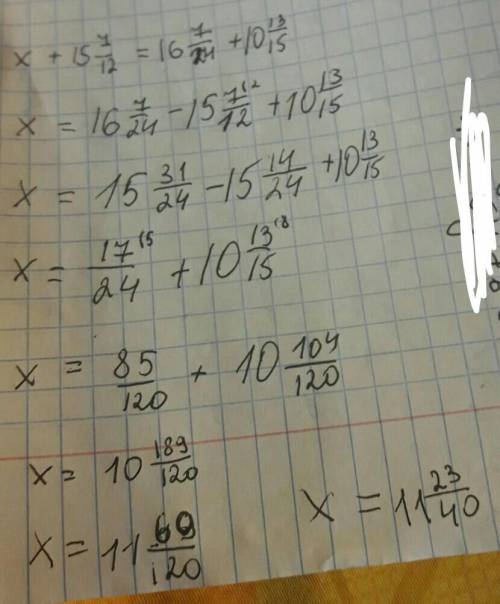 x + 15 7/12 = 16 7/24 + 10 13/15
x = 16 7/24 - 15 7/12 |2 + 10 13/15
x = 15 31/24 - 15 14/24 + 10 13/15
x = 17/24 |5 + 10 13/15 |8
x = 85/120 + 10 104/120
x = 10 189/120
x = 11 69/120
x = 11 23/40